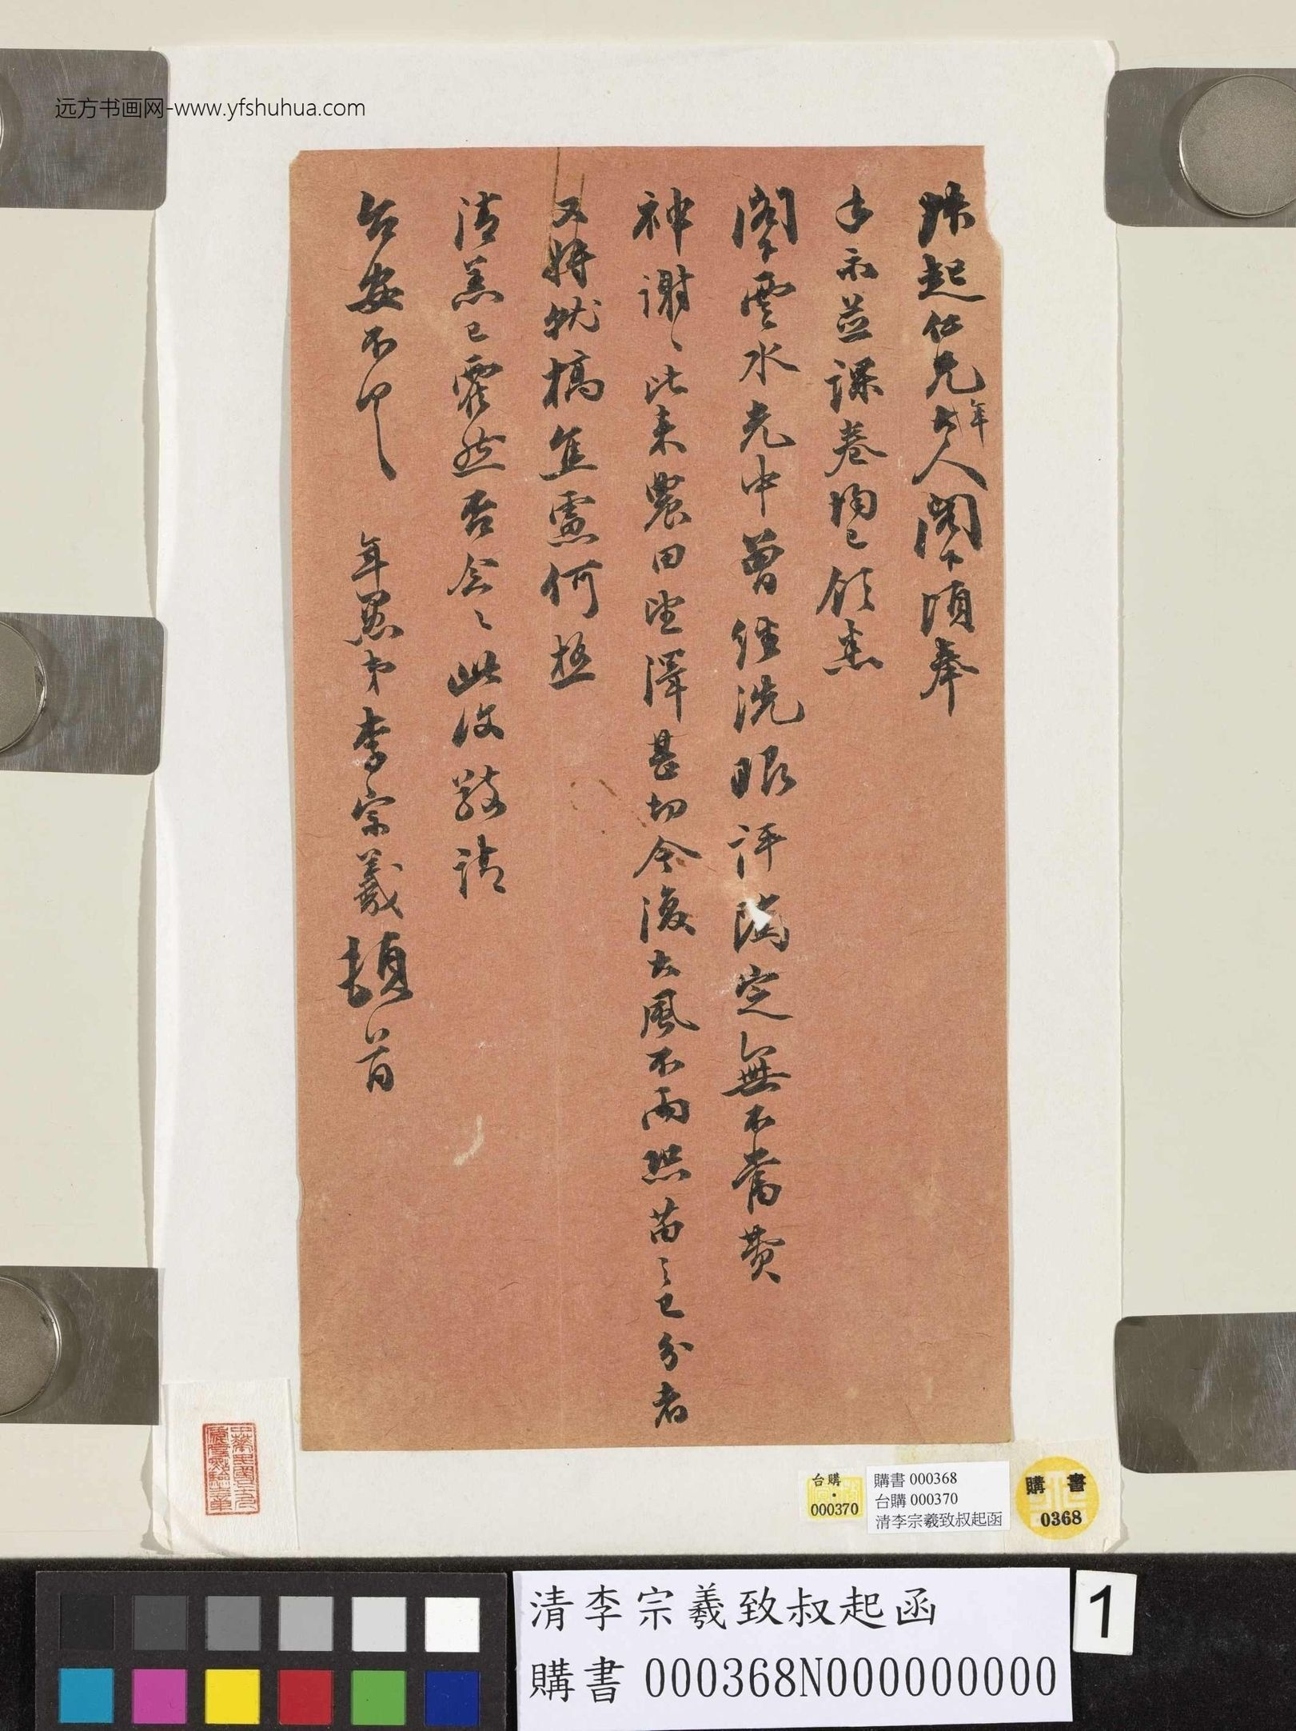 远方书画网-www.yfshuhua.com
叔起仁兄年大人阁下頃奉
手示並課卷均已領悉
閣下雲水光中曾經洗眼評隲定無不當費
神謝謝此来農田望澤甚切今復大風不雨恐苗之已分者
又將就槁焦慮何極
清恙已霍然否念念此復敬請
台安不一
年愚弟李宗羲頓首
台購
000370
購書 000368
台購 000370
清李宗羲致叔起函
購書
0368
清李宗羲致叔起函
購書 000368N000000000
1